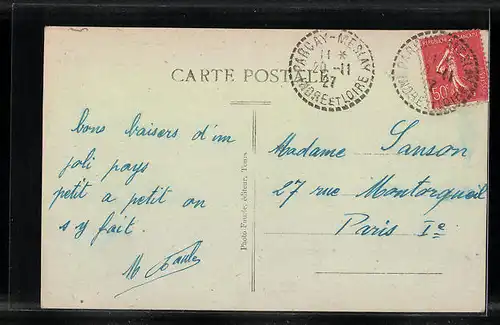 PARÇAY-MESLAY
11 *
20-11
27
INDRE ET LOIRE
50
CARTE POSTALE
bons baisers d'un
joli pays
petit a petit on
s'y fait.
M
Photo Fauler, éditeur, Tours
Madame Sanson
27 rue Montorgueil
Paris Ie